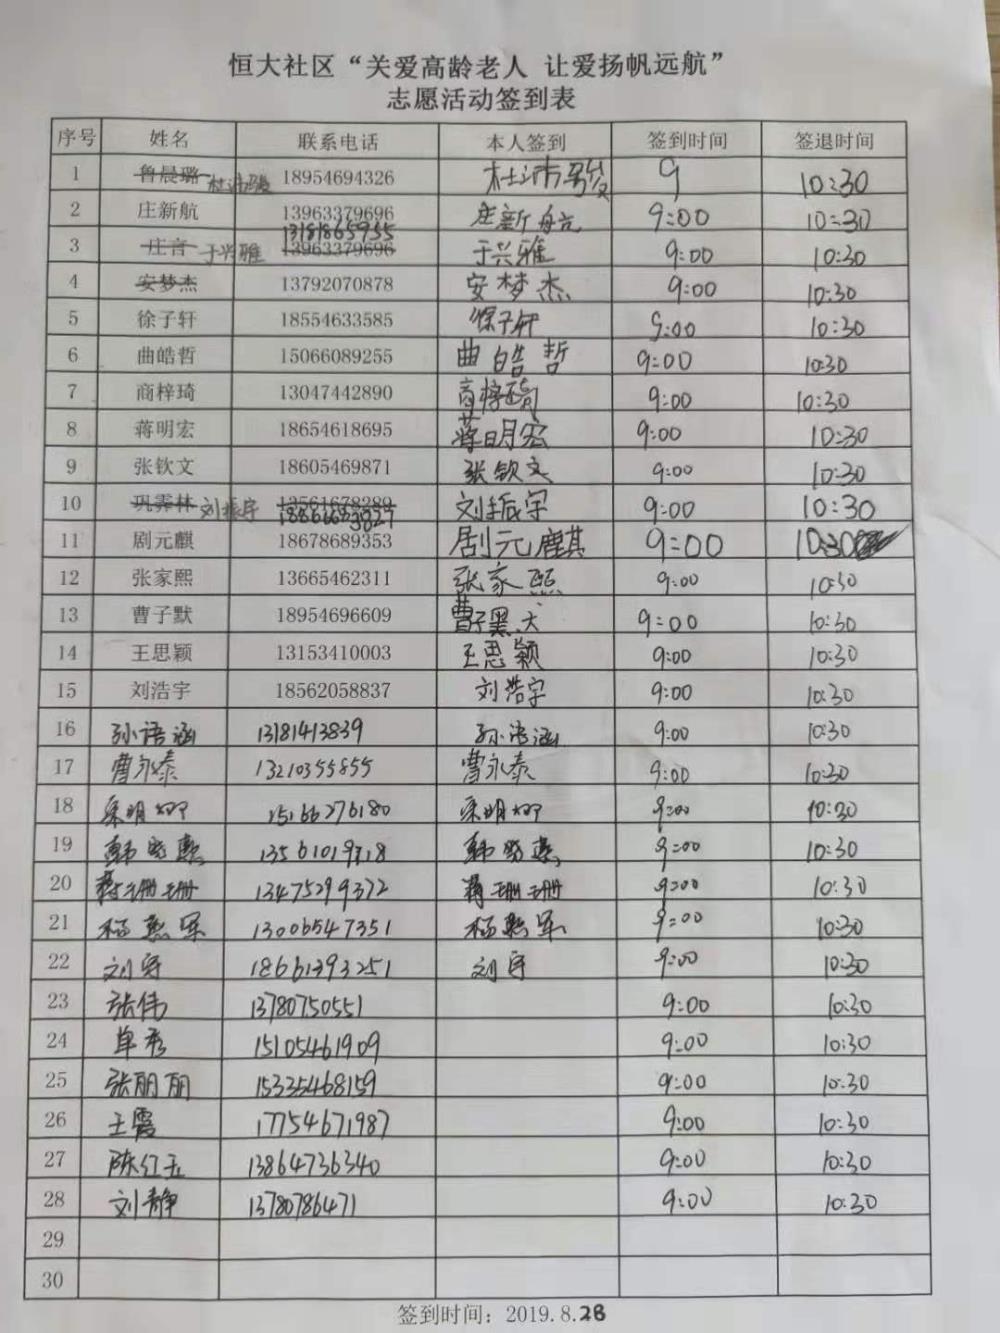 恒大社区“关爱高龄老人 让爱扬帆远航”
志愿活动签到表
序号 姓名 联系电话 本人签到 签到时间 签退时间
1 鲁晨璐 杜沛骏 18954694326 杜沛骏 9 10:30
2 庄新航 13963379696 庄新航 9:00 10:30
3 庄言 于兴雅 13181865955 13963379696 于兴雅 9:00 10:30
4 安梦杰 13792070878 安梦杰 9:00 10:30
5 徐子轩 18554633585 徐子轩 9:00 10:30
6 曲皓哲 15066089255 曲皓哲 9:00 10:30
7 商梓琦 13047442890 商梓琦 9:00 10:30
8 蒋明宏 18654618695 蒋明宏 9:00 10:30
9 张钦文 18605469871 张钦文 9:00 10:30
10 巩霁林 刘振宇 13561678289 刘振宇 9:00 10:30
11 剧元麒 18678689353 剧元麒 9:00 10:30
12 张家熙 13665462311 张家熙 9:00 10:30
13 曹子默 18954696609 曹子默 9:00 10:30
14 王思颖 13153410003 王思颖 9:00 10:30
15 刘浩宇 18562058837 刘浩宇 9:00 10:30
16 孙语涵 13181413839 孙语涵 9:00 10:30
17 曹永泰 13210355855 曹永泰 9:00 10:30
18 15166276180 9:00 10:30
19 9:00 10:30
20 蒋珊珊 13475299372 蒋珊珊 9:00 10:30
21 13006547351 9:00 10:30
22 18661393251 9:00 10:30
23 张伟 13780750551 9:00 10:30
24 单秀 15105461909 9:00 10:30
25 张丽丽 15335468159 9:00 10:30
26 王震 17754671987 9:00 10:30
27 陈红玉 13864736340 9:00 10:30
28 刘静 13780786471 9:00 10:30
29
30
签到时间：2019.8.28